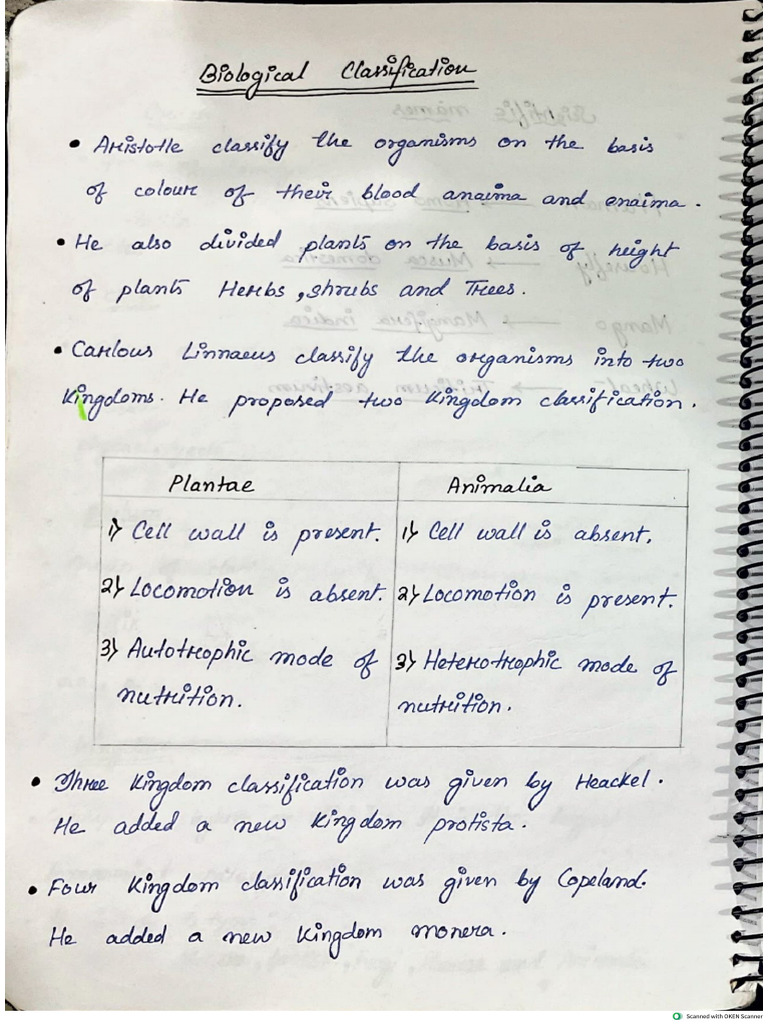 Biological Classification
• Aristotle classify the organisms on the basis
of colour of their blood anaima and enaima.
• He also divided plants on the basis of height
of plants Herbs, shrubs and Trees.
• Carlous Linnaeus classify the organisms into two
Kingdoms. He proposed two Kingdom classification.
Plantae
1) Cell wall is present.
2) Locomotion is absent.
3) Autotrophic mode of
nutrition.
Animalia
1) Cell wall is absent.
2) Locomotion is present.
3) Heterotrophic mode of
nutrition.
• Three Kingdom classification was given by Heackel.
He added a new Kingdom protista.
• Four Kingdom classification was given by Copeland.
He added a new Kingdom monera.
Scanned with OKEN Scanner